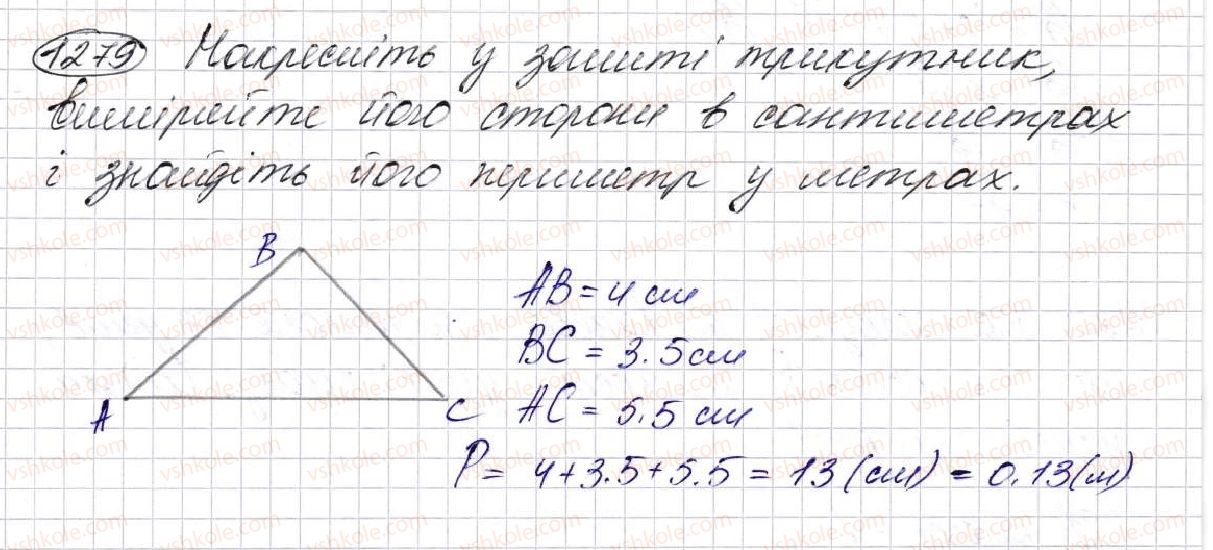 1279 Накресліть у зошиті трикутник,
виміряйте його сторони в сантиметрах
і знайдіть його периметр у метрах.
B
A
C
AB = 4 см
BC = 3.5 см
AC = 5.5 см
P = 4+3.5+5.5 = 13 (см) = 0.13 (м)
vshkole.com